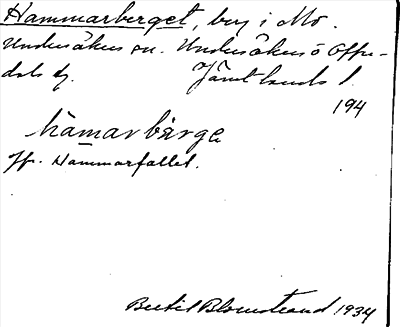 Hammarberget, berg i Mo.
Undersåkers sn. Undersåkers o Offer-
dals tg. Jämtlands l.
194
hàmarbärge
Jfr. Hammarfallet.
Bertil Blomstrand 1934